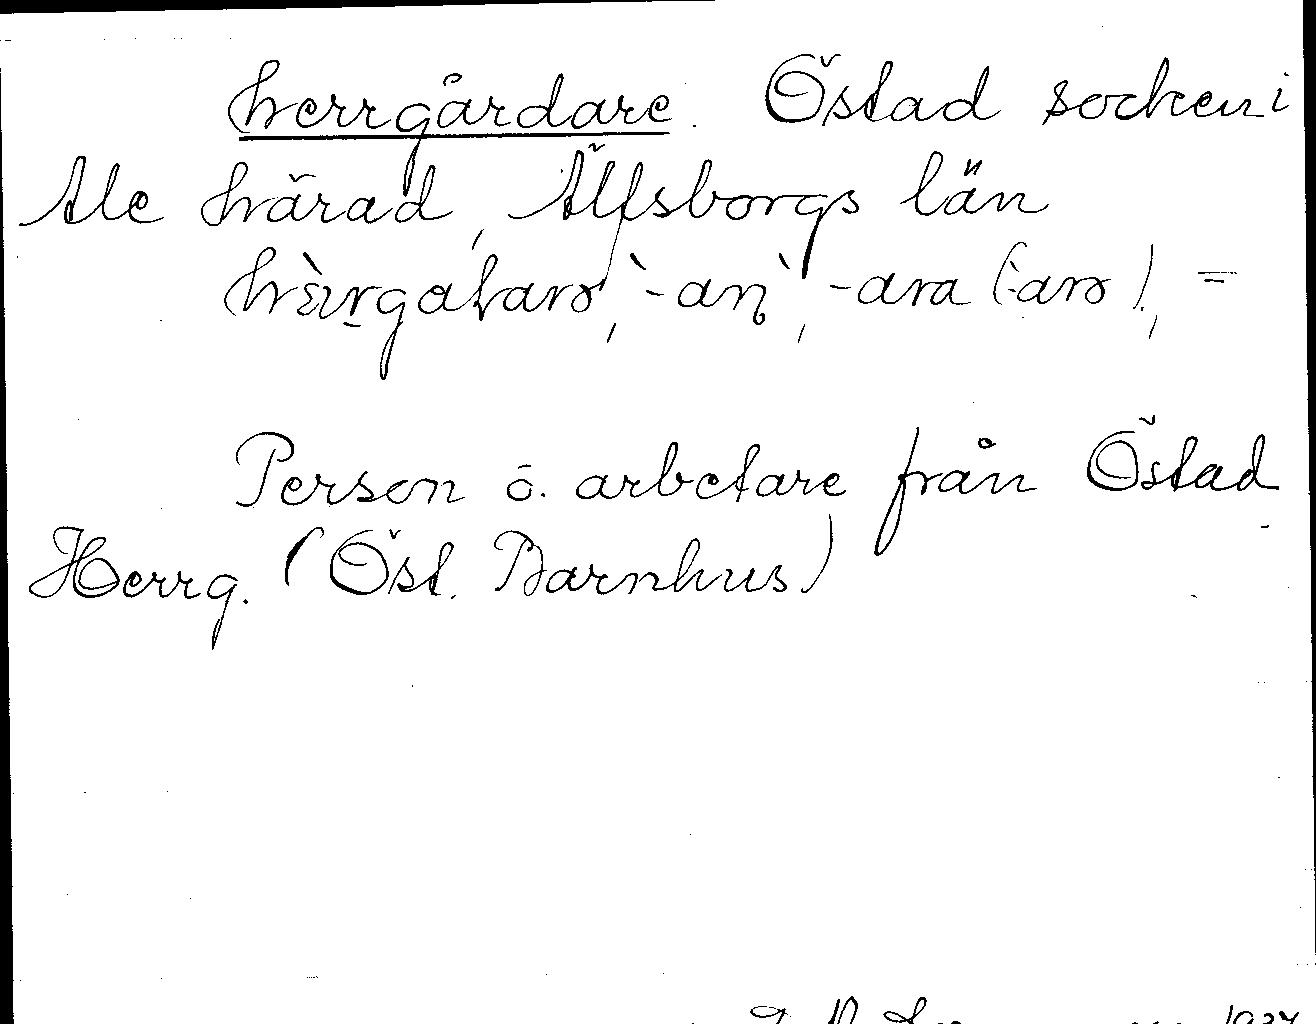 herrgårdare. Östad socken i
Ale härad, Älfsborgs län
-an, -ara (-arə), =
Person o. arbetare från Östad
Herrg. (Öst. Barnhus)
1937